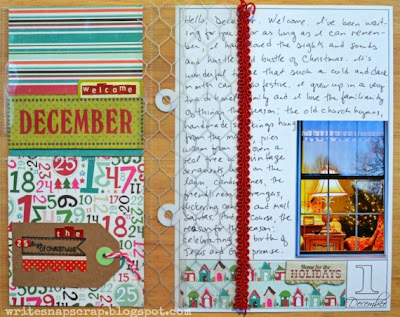 welcome
DECEMBER
the
25
of CHRISTMAS
Hello, December. Welcome. I've been wait-
ing for you for as long as I can remem-
ber. I have loved the sights and sounds
and hustle and bustle of Christmas. It's
wonderful to me that such a cold and dark
month can be so festive. I grew up in a very
traditional family and I love the familiarity
of things this season: the old church hymns,
handmade stockings hung
from the mantel, pies
warm from the oven, a
real tree with vintage
ornaments, the
friendliness of strangers,
flickering candles and Mall
Santas. And of course, the
reason for the season:
celebrating the birth of
Jesus and God's promise.
Home for the
HOLIDAYS
1
December
writesnapscrap.blogspot.com